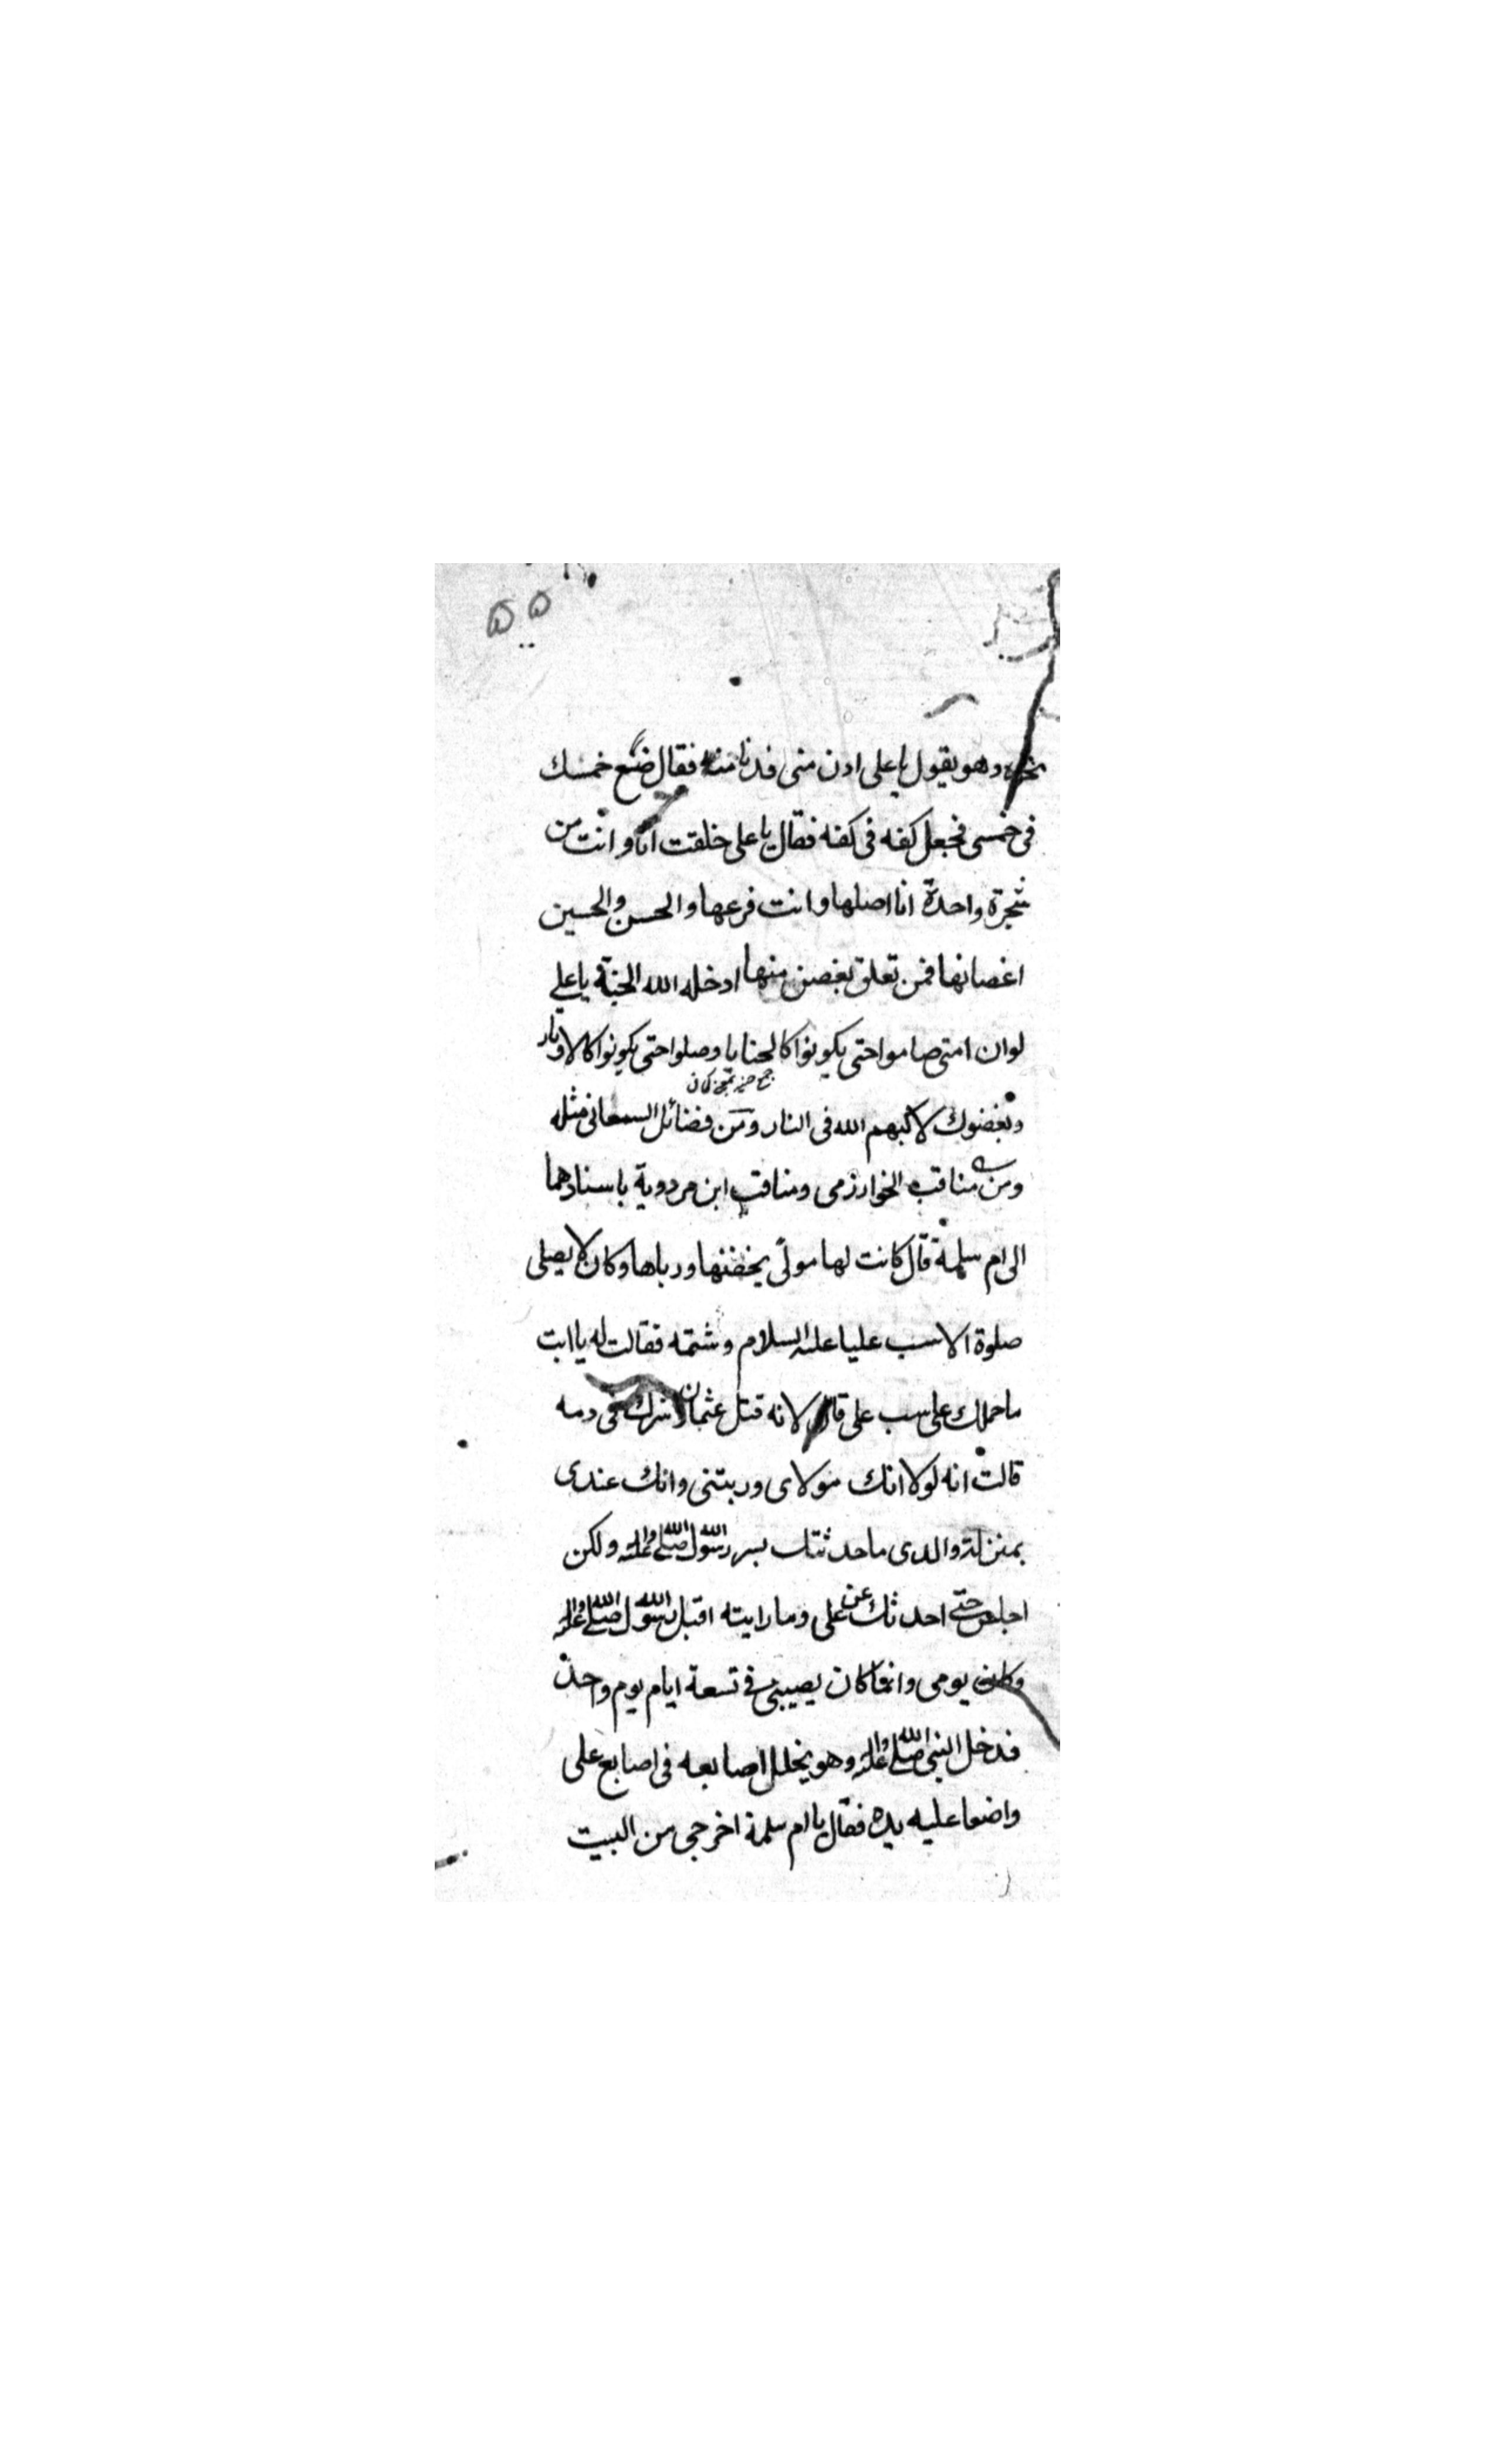 ۵۵
نحوه وهو يقول يا علی ادن منی فدنا منه فقال ضع خمسك
فی خمسی فجعل كفه فی كفه فقال يا علی خلقت انا و انت من
شجرة واحدة انا اصلها و انت فرعها والحسن والحسين
اغصانها فمن تعلق بغصن منها ادخله الله الجنة يا علی
لو ان امتی صاموا حتی يكونوا كالحنايا وصلوا حتی يكونوا كالاوتار
جمع حنيه كمان
وبغضوك لاكبهم الله فی النار ومن فضائل السمعانی مثله
ومن مناقب الخوارزمی ومناقب ابن مردوية باسنادهما
الی ام سلمة قال كانت لها مولی يحضنها ورباها وكان لا يصلی
صلوة الا سب عليا عليه السلام وشتمه فقالت له يا ابت
ما حملك علی سب علی قال لانه قتل عثمان وشرك فی دمه
قالت انه لولا انك مولای وربيتنی وانك عندی
بمنزلة والدی ما حدثتك بسر رسول الله صلی الله عليه واله ولكن
اجلس حتی احدثك عن علی وما رايته اقبل رسول الله صلی الله عليه واله
وكان يومی وانما كان يصيبنی فی تسعة ايام يوم واحد
فدخل النبی صلی الله عليه واله وهو يخلل اصابعه فی اصابع علی
واضعا عليه يده فقال يا ام سلمة اخرجی من البيت